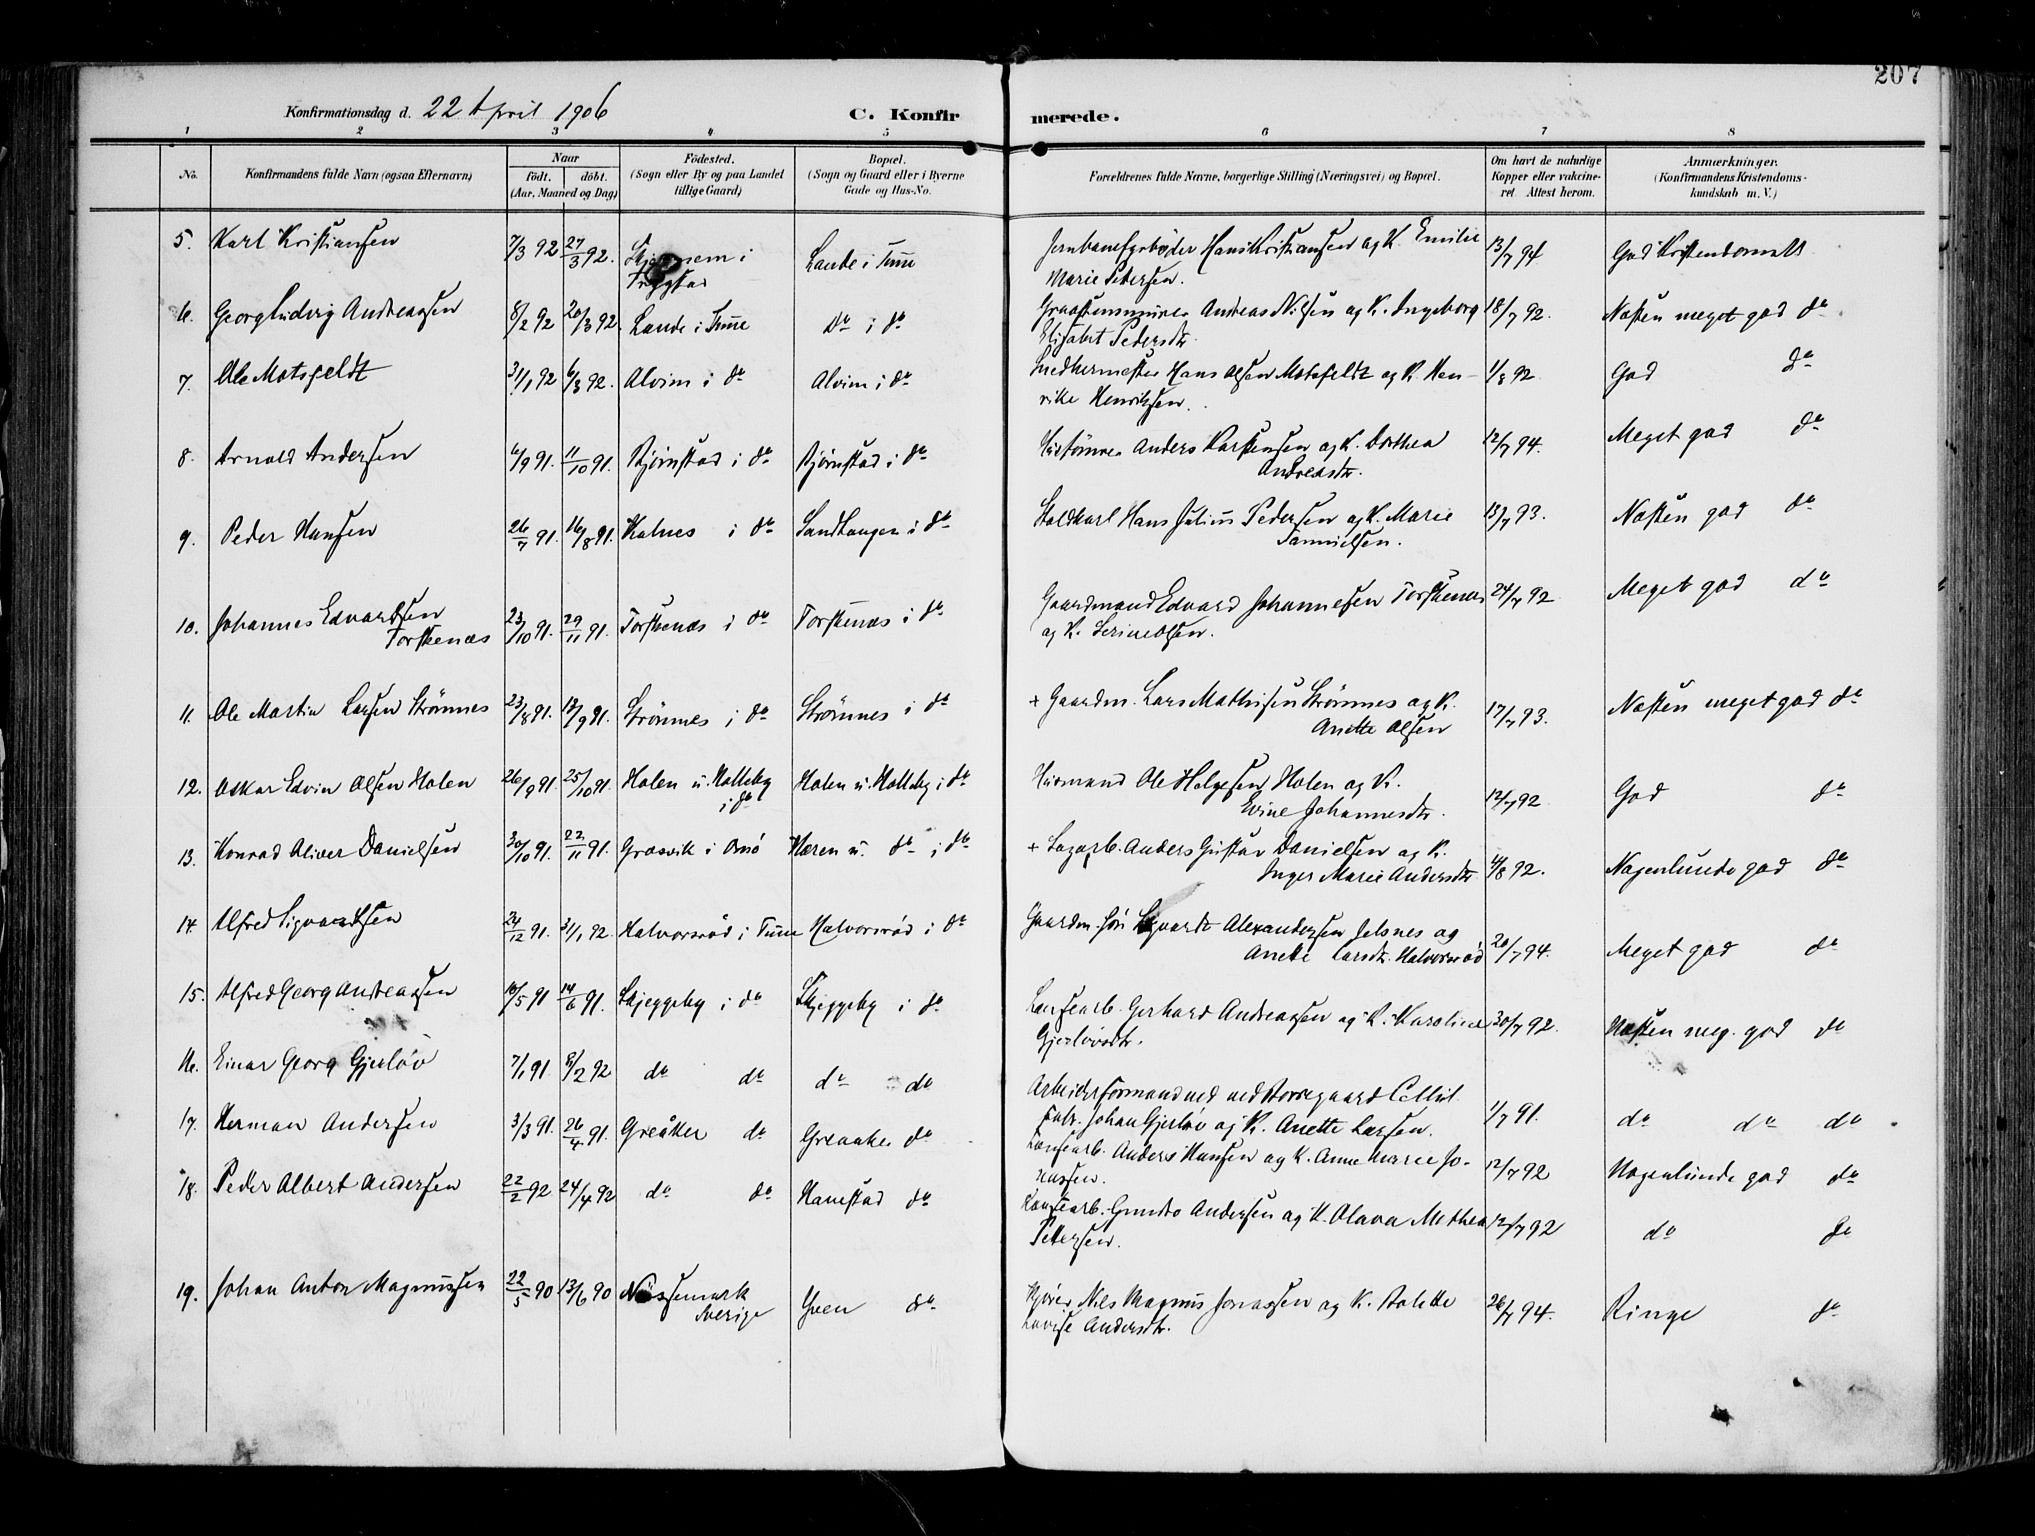 207
Konfirmationsdag d. 22 April 1906
C. Konfirmerede.
1 2 3 4 5 6 7 8
No. Konfirmandens fulde Navn (ogsaa Efternavn) Naar født. døbt. (Aar, Maaned og Dag) Födested. (Sogn eller By og paa Landet tillige Gaard) Bopæl. (Sogn og Gaard eller i Byerne Gade og Hus-No. Forældrenes fulde Navne, borgerlige Stilling (Næringsvei) og Bopæl. Om havt de naturlige Kopper eller vakcineret Attest herom. Anmærkninger. (Konfirmandens Kristendomskundskab m. V.)
5. Karl Kristiansen 7/3 92 27/3 92. i Trøgstad Lande i Tune Jernbanefyrbøder Hans Kristiansen og K. Emilie 13/7 94 God Kristendomsk
Marie Petersen.
6. Georg Ludvig Andreassen 8/2 92 20/3 92. Lande i Tune do i do Graastensminer Andreas Nilsen og K. Ingeborg 18/7 92. Næsten meget god do
Elisabet Pedersdtr.
7. Ole Motsfeldt 31/1 92 6/3 92. Alvim i do Alvim i do Smedhermester Hans Olsen Motsfeldt og K. Hen- 1/8 92 God do
rikke Henriksen.
8. Arnold Andersen 6/9 91. 11/10 91. Bjørnstad i do Bjørnstad i do Hustømrer Anders Karstensen og K. Dorthea 12/7 94. Meget god do
Andreasdtr.
9. Peder Hansen 26/7 91. 16/8 91. Kalnes i do Sandtangen i do Staldkarl Hans Julius Pedersen og K. Marie 13/7 93. Næsten god do
Danielsen.
10. Johannes Edvardsen 23/10 91. 29/11 91. Torskenæs i do Torskenæs i do Gaardmand Edvard Johannesen Torskenæs 24/7 92 Meget god do
Torskenæs og K. Serine Olsen.
11. Ole Martin Larsen Strømnes 23/8 91. 17/9 91. Strømnes i do Strømnes i do + Gaardm. Lars Mathisen Strømnes og K. 17/7 93. Næsten meget god do
Anette Olsen
12. Oskar Edvin Olsen Holen 26/9 91. 25/10 91. Holen u. Halleby i do Holen u. Halleby i do Husmand Ole Helgesen Holen og K. 12/7 92 God do
Evine Johannesdtr.
13. Konrad Oliver Danielsen 30/10 91. 22/11 91. Grasvik i Onsø Næren u. do i do + Sagarb. Anders Gustav Danielsen og K. 4/8 92. Nogenlunde god do
Inger Marie Andersdtr
14. Alfred Sigvardsen 24/12 91. 31/1 92. Halvorsrød i Tune Halvorsrød i do Gaardm. Sigvardt Alexandersen Jelsnes og 20/7 94. Meget god do
Anette Larsdtr. Halvorsrød
15. Alfred Georg Andreassen 10/5 91 14/6 91. Skjeggeby i do Skjeggeby i do Lænsearb. Gerhard Andreassen og K. Karoline 30/7 92. Næsten meg. god do
Gjerløvsdtr.
16. Einar Georg Gjerløv 7/1 91. 8/2 92 do do do do Arbeidsformand ved Borregaard Cellul.
fabr. Johan Gjerløv og K. Anette Larsen. 1/7 91. do do do
17. Herman Andersen 3/3 91. 26/4 91. Greåker do Greaaker do Lænsearb. Anders Hansen og K. Anne Marie Jo- 12/7 92 Nogenlunde god do
hansen.
18. Peder Albert Andersen 22/2 92 24/4 92 do do Hanestad do Lænsearb. Gundro Andersen og K. Olava Mathea 12/7 92 do do
Petersen.
19. Johan Anton Magnussen 22/5 90 13/6 90 Nössemark Sverige Yven do Kjører Nils Magnus Jonassen og K. Bolette 26/7 94. Ringe do
Lovise Andersdtr.